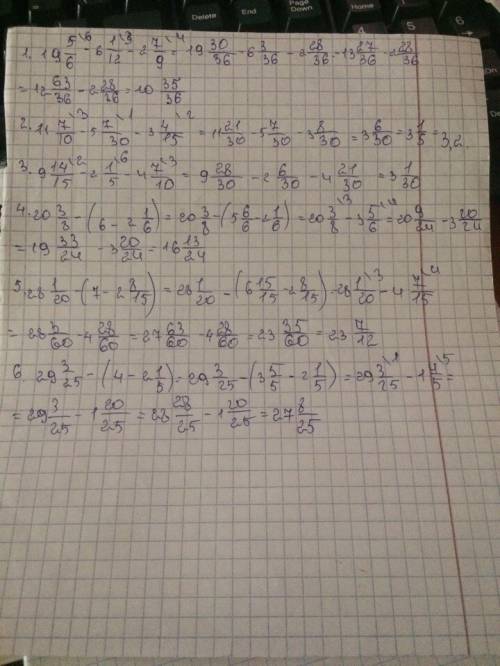 1. 19 5/6 \6 - 6 1/12 \3 - 2 7/9 \4 = 19 30/36 - 6 3/36 - 2 28/36 = 13 27/36 - 2 28/36
= 12 63/36 - 2 28/36 = 10 35/36
2. 11 7/10 \3 - 5 7/30 \1 - 3 4/15 \2 = 11 21/30 - 5 7/30 - 3 8/30 = 3 6/30 = 3 1/5 = 3,2
3. 9 14/15 \2 - 2 1/5 \6 - 4 7/10 \3 = 9 28/30 - 2 6/30 - 4 21/30 = 3 1/30
4. 20 3/8 - (6 - 2 1/6) = 20 3/8 - (5 6/6 - 2 1/6) = 20 3/8 \3 - 3 5/6 \4 = 20 9/24 - 3 20/24
= 19 33/24 - 3 20/24 = 16 13/24
5. 28 1/20 - (7 - 2 8/15) = 28 1/20 - (6 15/15 - 2 8/15) = 28 1/20 \3 - 4 7/15 \4
= 28 3/60 - 4 28/60 = 27 63/60 - 4 28/60 = 23 35/60 = 23 7/12
6. 29 3/25 - (4 - 2 1/5) = 29 3/25 - (3 5/5 - 2 1/5) = 29 3/25 \1 - 1 4/5 \5 =
= 29 3/25 - 1 20/25 = 28 28/25 - 1 20/25 = 27 8/25
Delete
End
Page Down
4
5
6